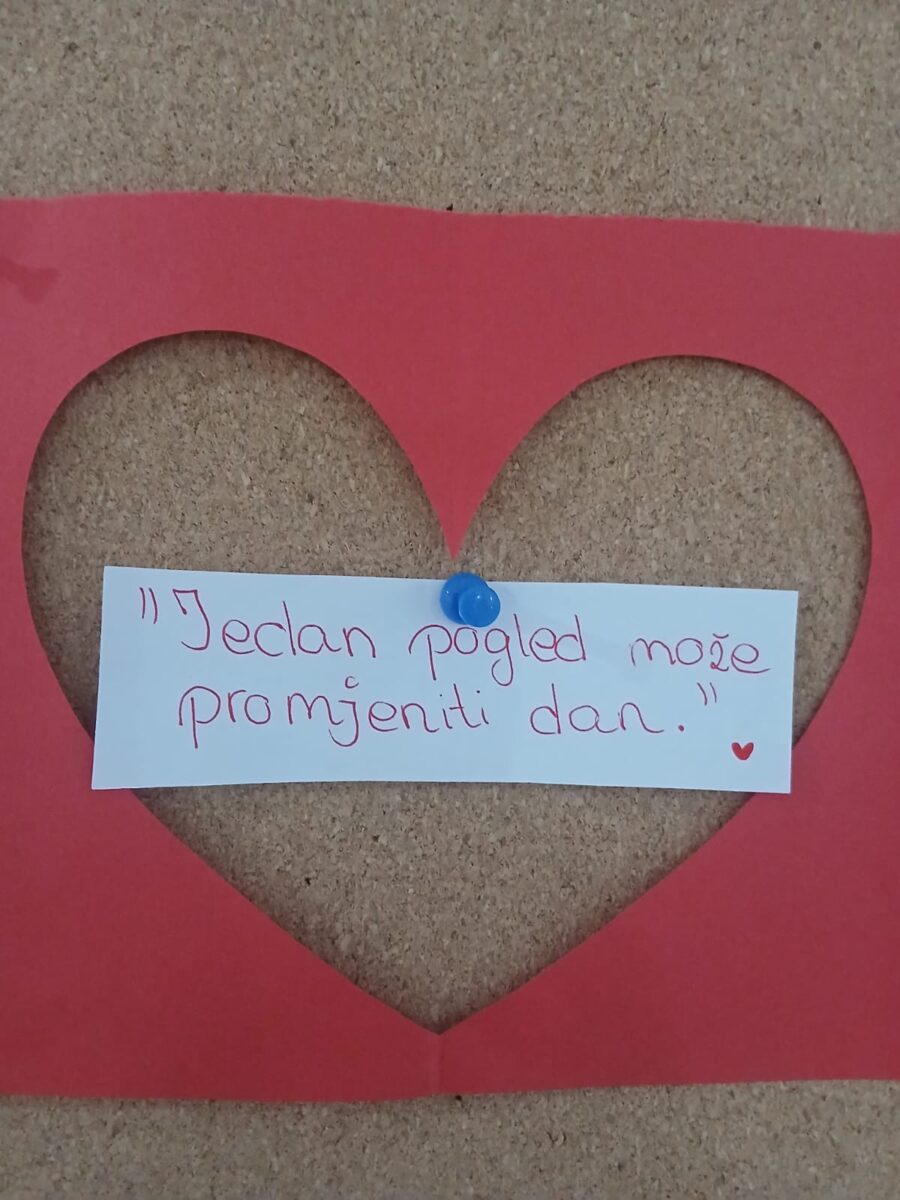 "Jedan pogled može
promjeniti dan."